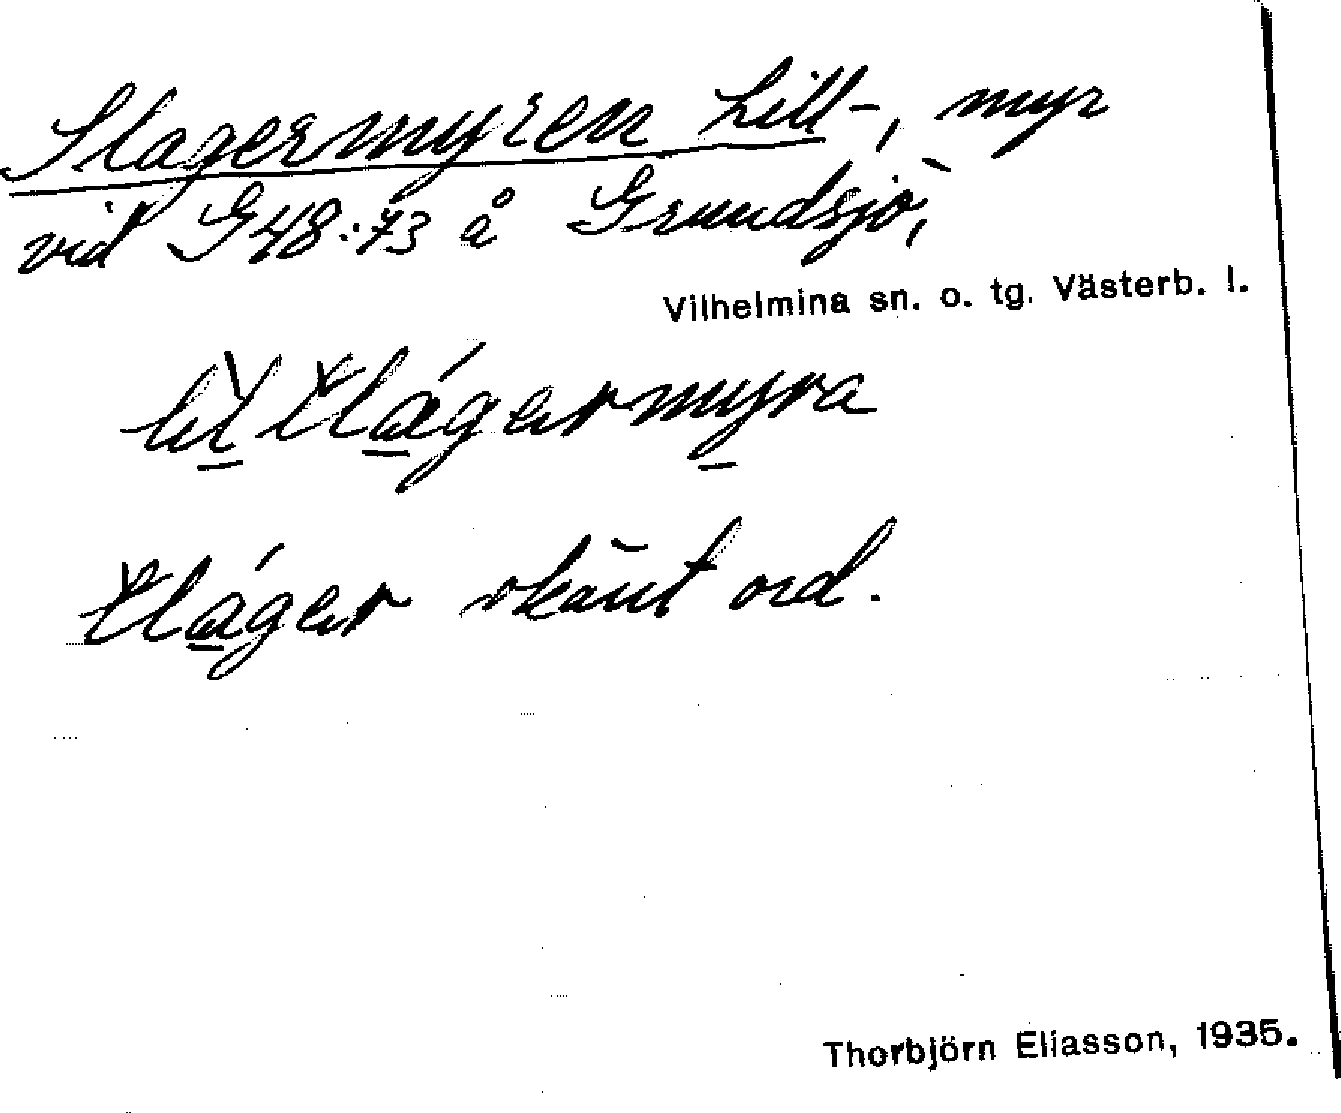 Slagermyren Lill-, myr
vid G48:73 å Grundsjö,
Vilhelmina sn. o. tg. Västerb. l.
okänt ord.
Thorbjörn Eliasson, 1935.